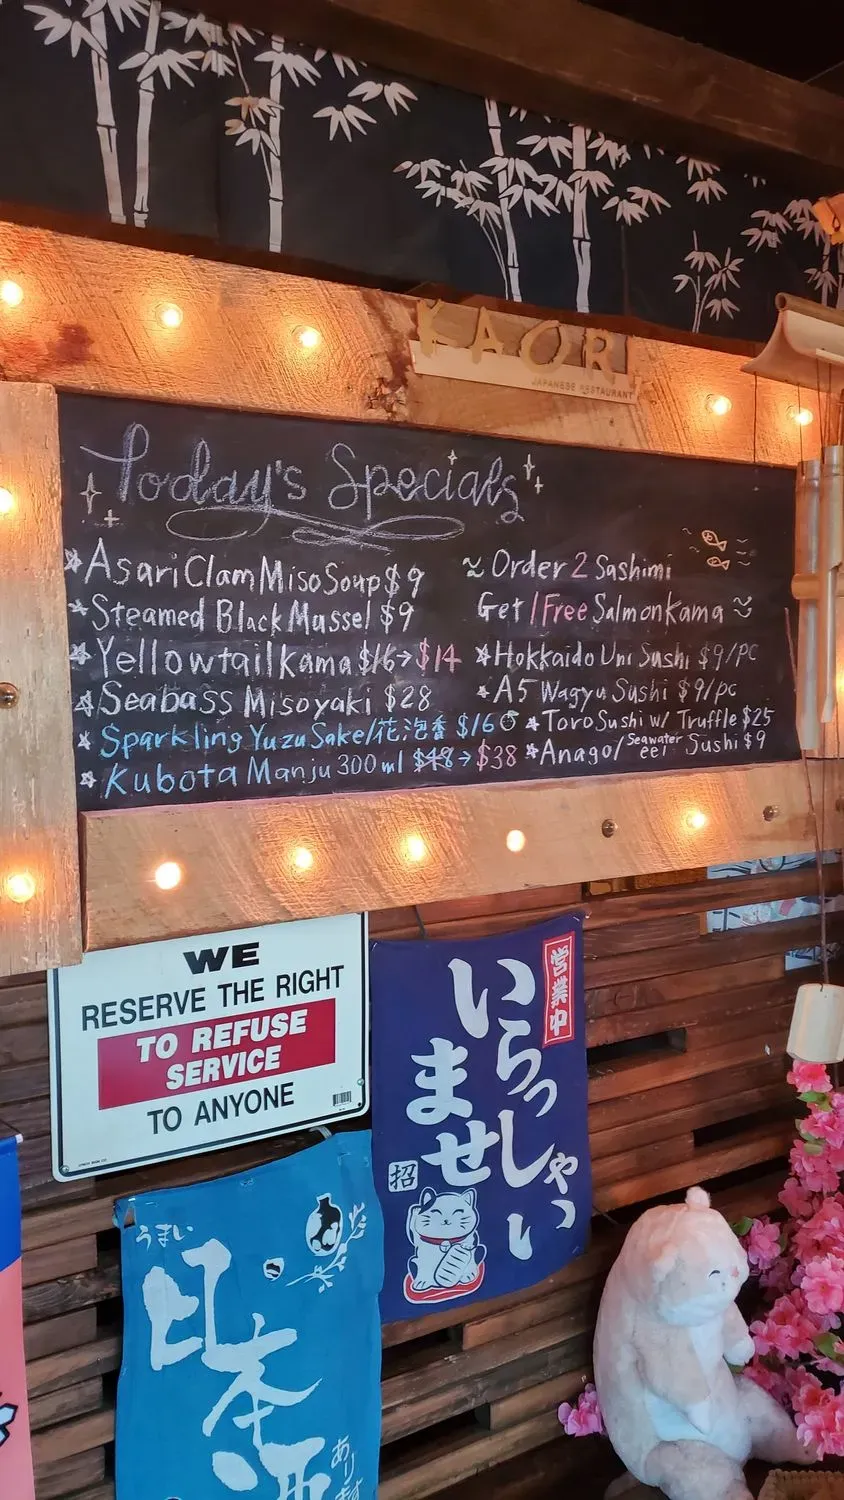 KAORI
JAPANESE RESTAURANT
Today's Specials
Asari Clam Miso Soup $9
Steamed Black Mussel $9
Yellowtail Kama $16→$14
Seabass Misoyaki $28
Sparkling Yuzu Sake/花泡香 $16
Kubota Manju 300ml $48→$38
Order 2 Sashimi
Get 1 Free Salmon Kama
Hokkaido Uni Sushi $9/pc
A5 Wagyu Sushi $9/pc
Toro Sushi w/ Truffle $25
Anago/Seawater eel Sushi $9
WE
RESERVE THE RIGHT
TO REFUSE
SERVICE
TO ANYONE
営業中
いらっしゃい
ませ
招
うまい
日本酒
あります